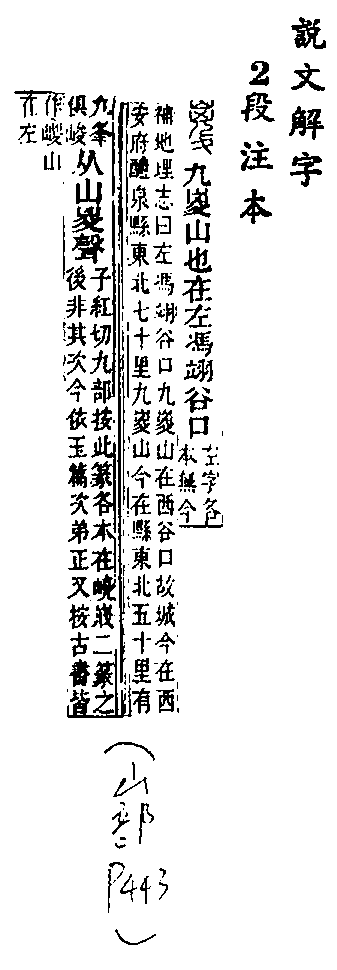 說文解字
2段注本
九嵏山也在左馮翊谷口
左字各
本無今
補地理志曰左馮翊谷口九嵏山在西谷口故城今在西
安府醴泉縣東北七十里九嵏山今在縣東北五十里有
九峯
俱峻
从山嵏聲
子紅切九部按此篆各本在嶢二篆之
後非其次今依玉篇次弟正又按古書皆
作嵕山
在左
(山部
P443)